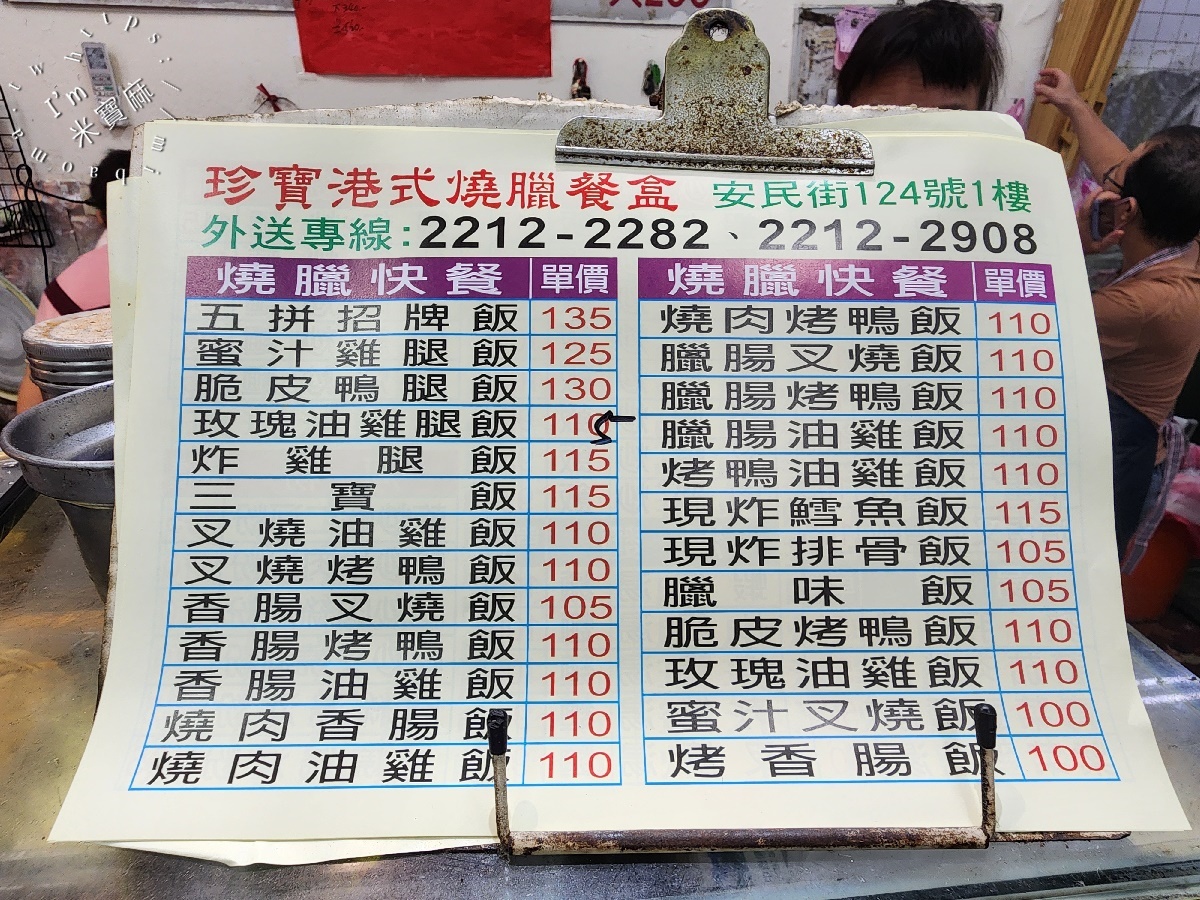 I'm
米寶麻
珍寶港式燒臘餐盒 安民街124號1樓
外送專線:2212-2282、2212-2908
燒臘快餐 單價
五拼招牌飯 135
蜜汁雞腿飯 125
脆皮鴨腿飯 130
玫瑰油雞腿飯 110
炸雞腿飯 115
三寶飯 115
叉燒油雞飯 110
叉燒烤鴨飯 110
香腸叉燒飯 105
香腸烤鴨飯 110
香腸油雞飯 110
燒肉香腸飯 110
燒肉油雞飯 110
燒臘快餐 單價
燒肉烤鴨飯 110
臘腸叉燒飯 110
臘腸烤鴨飯 110
臘腸油雞飯 110
烤鴨油雞飯 110
現炸鱈魚飯 115
現炸排骨飯 105
臘味飯 105
脆皮烤鴨飯 110
玫瑰油雞飯 110
蜜汁叉燒飯 100
烤香腸飯 100